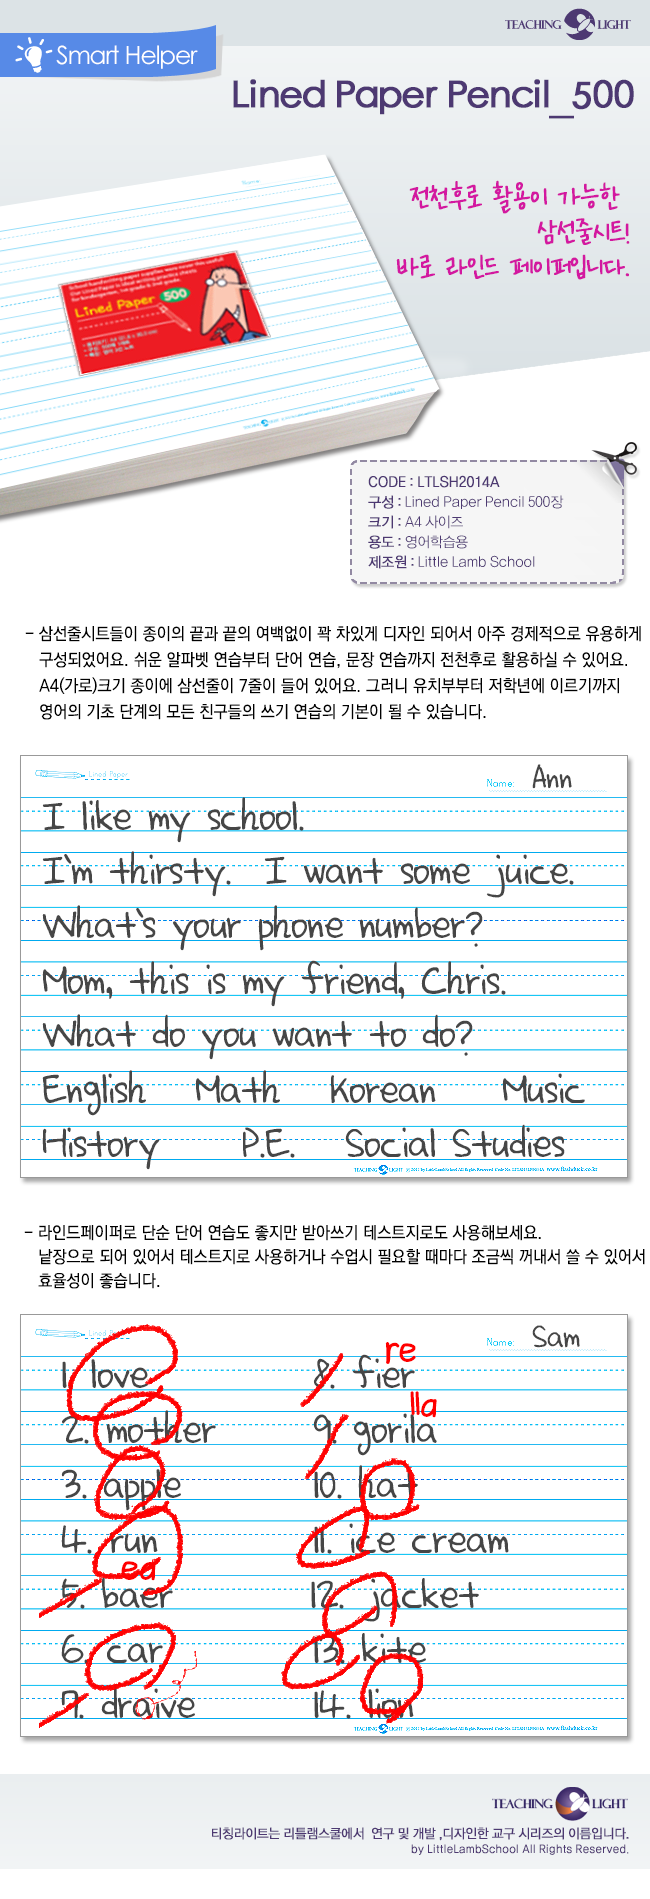 TEACHING LIGHT
Smart Helper
Lined Paper Pencil_500
전천후로 활용이 가능한
삼선줄시트!
바로 라인드 페이퍼입니다.
Lined Paper 500
CODE : LTLSH2014A
구성 : Lined Paper Pencil 500장
크기 : A4 사이즈
용도 : 영어학습용
제조원 : Little Lamb School
- 삼선줄시트들이 종이의 끝과 끝의 여백없이 꽉 차있게 디자인 되어서 아주 경제적으로 유용하게
구성되었어요. 쉬운 알파벳 연습부터 단어 연습, 문장 연습까지 전천후로 활용하실 수 있어요.
A4(가로)크기 종이에 삼선줄이 7줄이 들어 있어요. 그러니 유치부부터 저학년에 이르기까지
영어의 기초 단계의 모든 친구들의 쓰기 연습의 기본이 될 수 있습니다.
Lined Paper
Name: Ann
I like my school.
I'm thirsty. I want some juice.
What's your phone number?
Mom, this is my friend, Chris.
What do you want to do?
English Math Korean Music
History P.E. Social Studies
TEACHING LIGHT
- 라인드페이퍼로 단순 단어 연습도 좋지만 받아쓰기 테스트지로도 사용해보세요.
낱장으로 되어 있어서 테스트지로 사용하거나 수업시 필요할 때마다 조금씩 꺼내서 쓸 수 있어서
효율성이 좋습니다.
Name: Sam
re
1. love 8. fier
lla
2. mother 9. gorila
3. apple 10. hat
4. run 11. ice cream
ea
5. baer 12. jacket
6. car 13. kite
7. draive 14. lion
TEACHING LIGHT
TEACHING LIGHT
티칭라이트는 리틀램스쿨에서 연구 및 개발 ,디자인한 교구 시리즈의 이름입니다.
by LittleLambSchool All Rights Reserved.